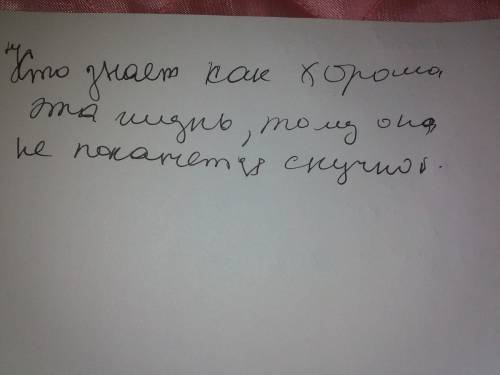 Кто знает как хороша
эта жизнь, тому она
не покажется скучной.